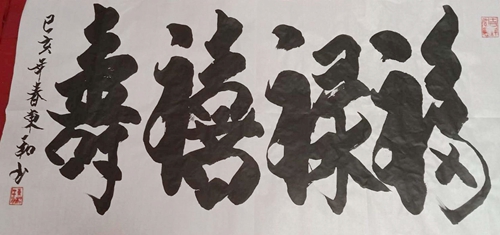 福禄禧寿
己亥年春東勒书